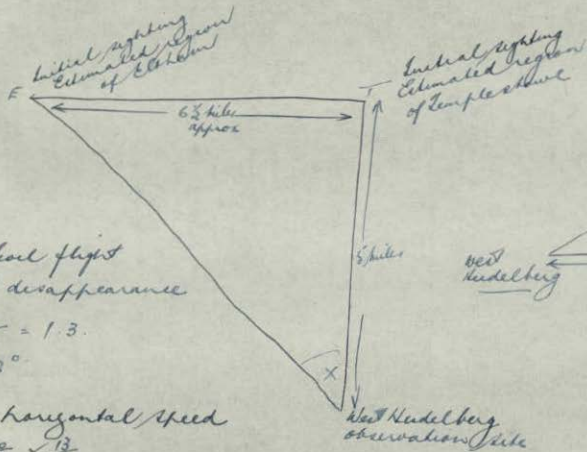 Initial sighting
Estimated region
of Eltham
E
T
Initial sighting
Estimated region
of Templestowe
6½ miles
approx
5 miles
flight
disappearance
= 1.3.
8°
X
horizontal speed
13
West
Heidelberg
West Heidelberg
observation site